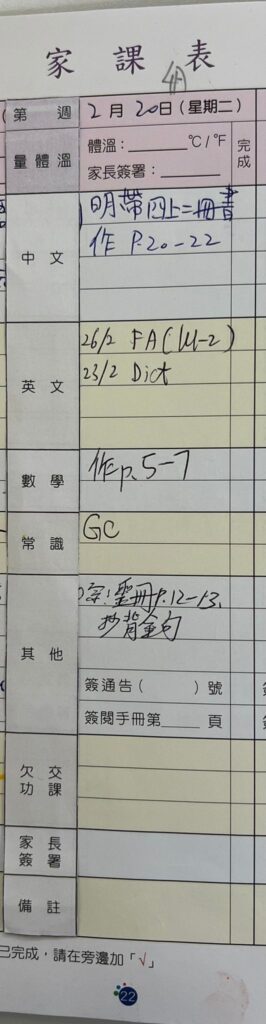 家課表
第 週 2月20日(星期二) 完成
量體溫 體溫：______℃/℉
家長簽署：______
中文 明帶四上二冊書
作 P.20-22
英文 26/2 FA(U1-2)
23/2 Dict
數學 作p.5-7
常識 GC
其他 靈冊P.12-13,
抄背金句
簽通告( )號
簽閱手冊第____頁
欠交功課
家長簽署
備註
已完成，請在旁邊加「√」
22